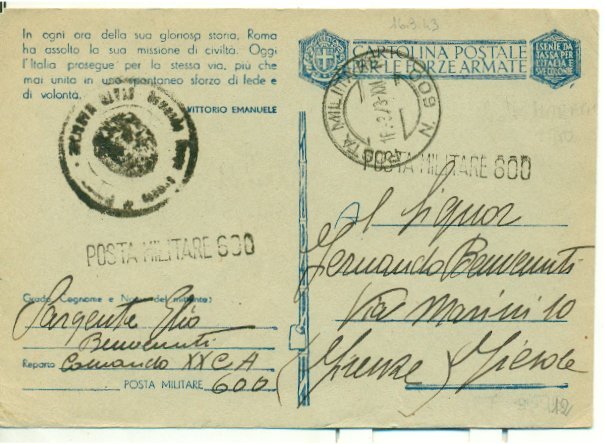 16.3.43
In ogni ora della sua gloriosa storia, Roma
ha assolto la sua missione di civiltà. Oggi
l'Italia prosegue per la stessa via, più che
mai unita in uno spontaneo sforzo di fede e
di volontà.
VITTORIO EMANUELE
CARTOLINA POSTALE
PER LE FORZE ARMATE
ESENTE DA
TASSA PER
L'ITALIA E
SUE COLONIE
POSTA MILITARE N. 600
POSTA MILITARE 600
POSTA MILITARE 600
Grado, Cognome e Nome del mittente:
Sargente Elio
Benvenuti
Reparto Comando XX C A
POSTA MILITARE 600
Al Signor
Fernando Benvenuti
Via Marini 10
Firenze (Fiesole)
12